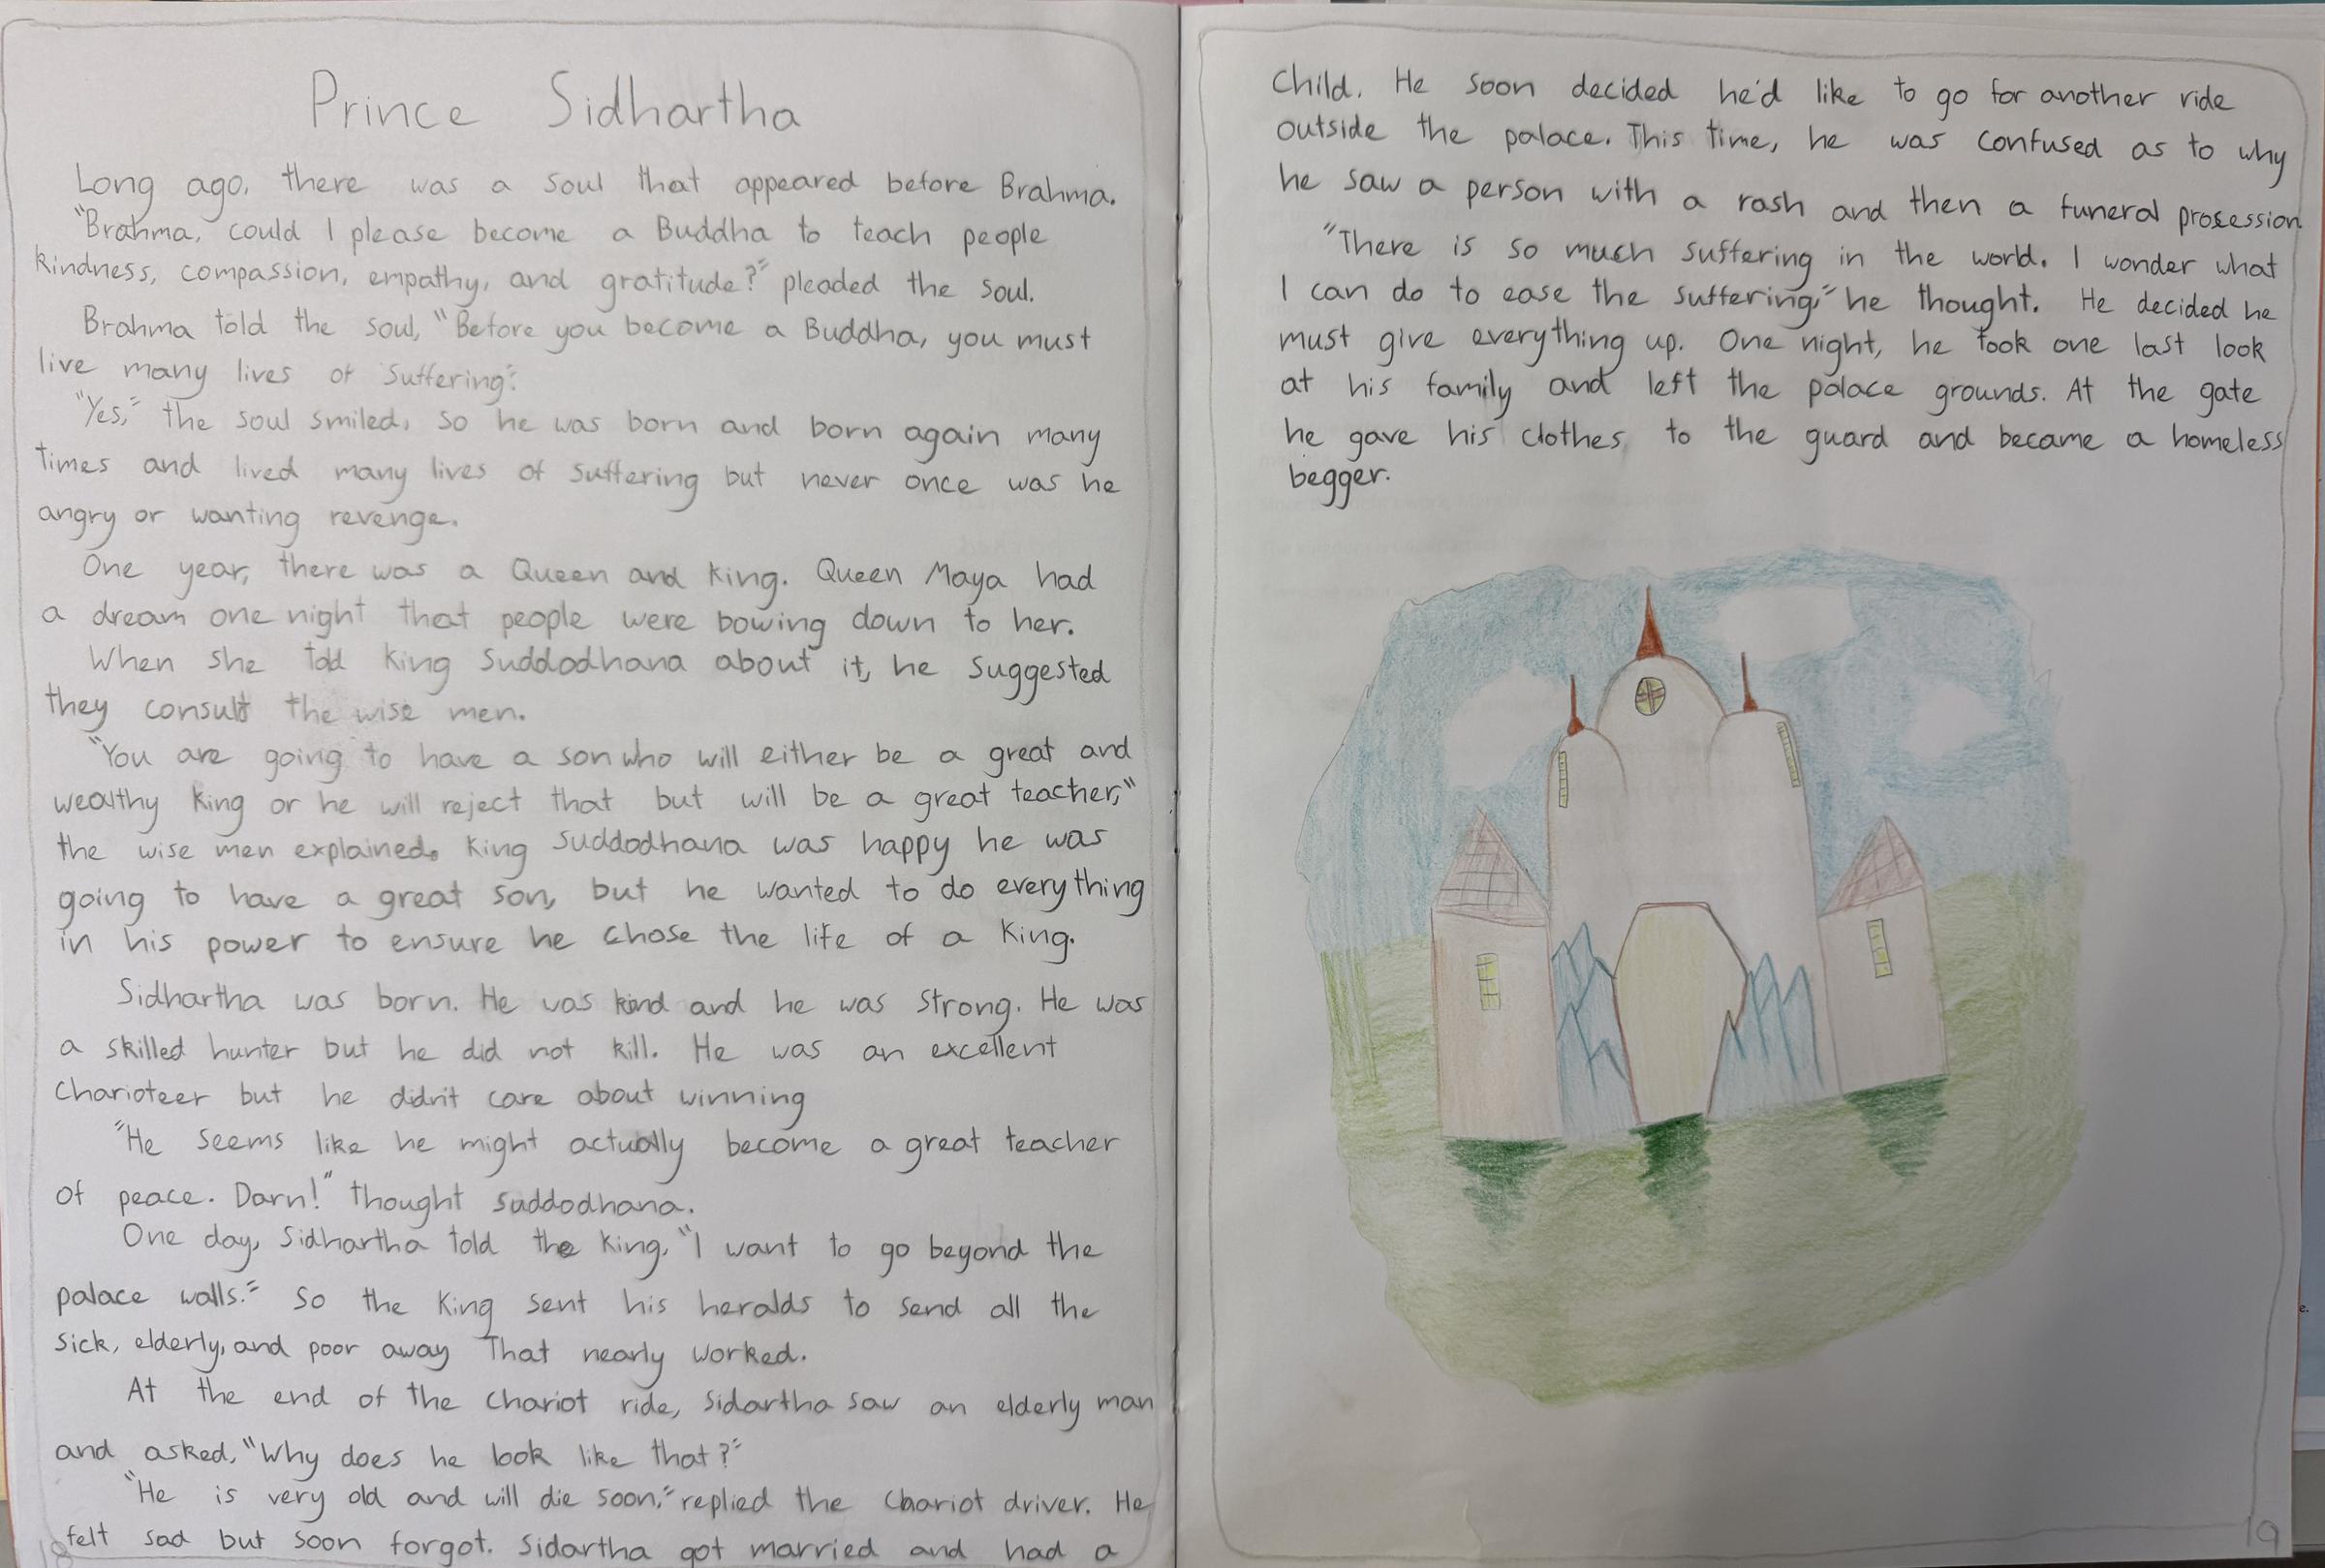 Prince Sidhartha
Long ago, there was a soul that appeared before Brahma.
"Brahma, could I please become a Buddha to teach people
kindness, compassion, empathy, and gratitude?" pleaded the soul.
Brahma told the soul, "Before you become a Buddha, you must
live many lives of suffering".
"Yes," the soul smiled, so he was born and born again many
times and lived many lives of suffering but never once was he
angry or wanting revenge.
One year, there was a Queen and king. Queen Maya had
a dream one night that people were bowing down to her.
When she told king Suddodhana about it, he suggested
they consult the wise men.
"You are going to have a son who will either be a great and
wealthy king or he will reject that but will be a great teacher,"
the wise men explained. King Suddodhana was happy he was
going to have a great son, but he wanted to do everything
in his power to ensure he chose the life of a king.
Sidhartha was born. He was kind and he was strong. He was
a skilled hunter but he did not kill. He was an excellent
charioteer but he didn't care about winning
"He seems like he might actually become a great teacher
of peace. Darn!" thought Suddodhana.
One day, Sidhartha told the king, "I want to go beyond the
palace walls." So the King sent his heralds to send all the
sick, elderly, and poor away That nearly worked.
At the end of the chariot ride, Sidartha saw an elderly man
and asked, "Why does he look like that?"
"He is very old and will die soon," replied the chariot driver. He
felt sad but soon forgot. Sidartha got married and had a
18
child. He soon decided he'd like to go for another ride
outside the palace. This time, he was confused as to why
he saw a person with a rash and then a funeral prosession.
"There is so much suffering in the world. I wonder what
I can do to ease the suffering," he thought. He decided he
must give everything up. One night, he took one last look
at his family and left the palace grounds. At the gate
he gave his clothes to the guard and became a homeless
begger.
19